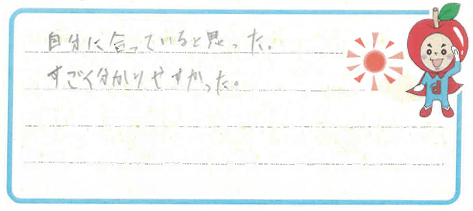 自分に合っていると思った。
すごく分かりやすかった。
d